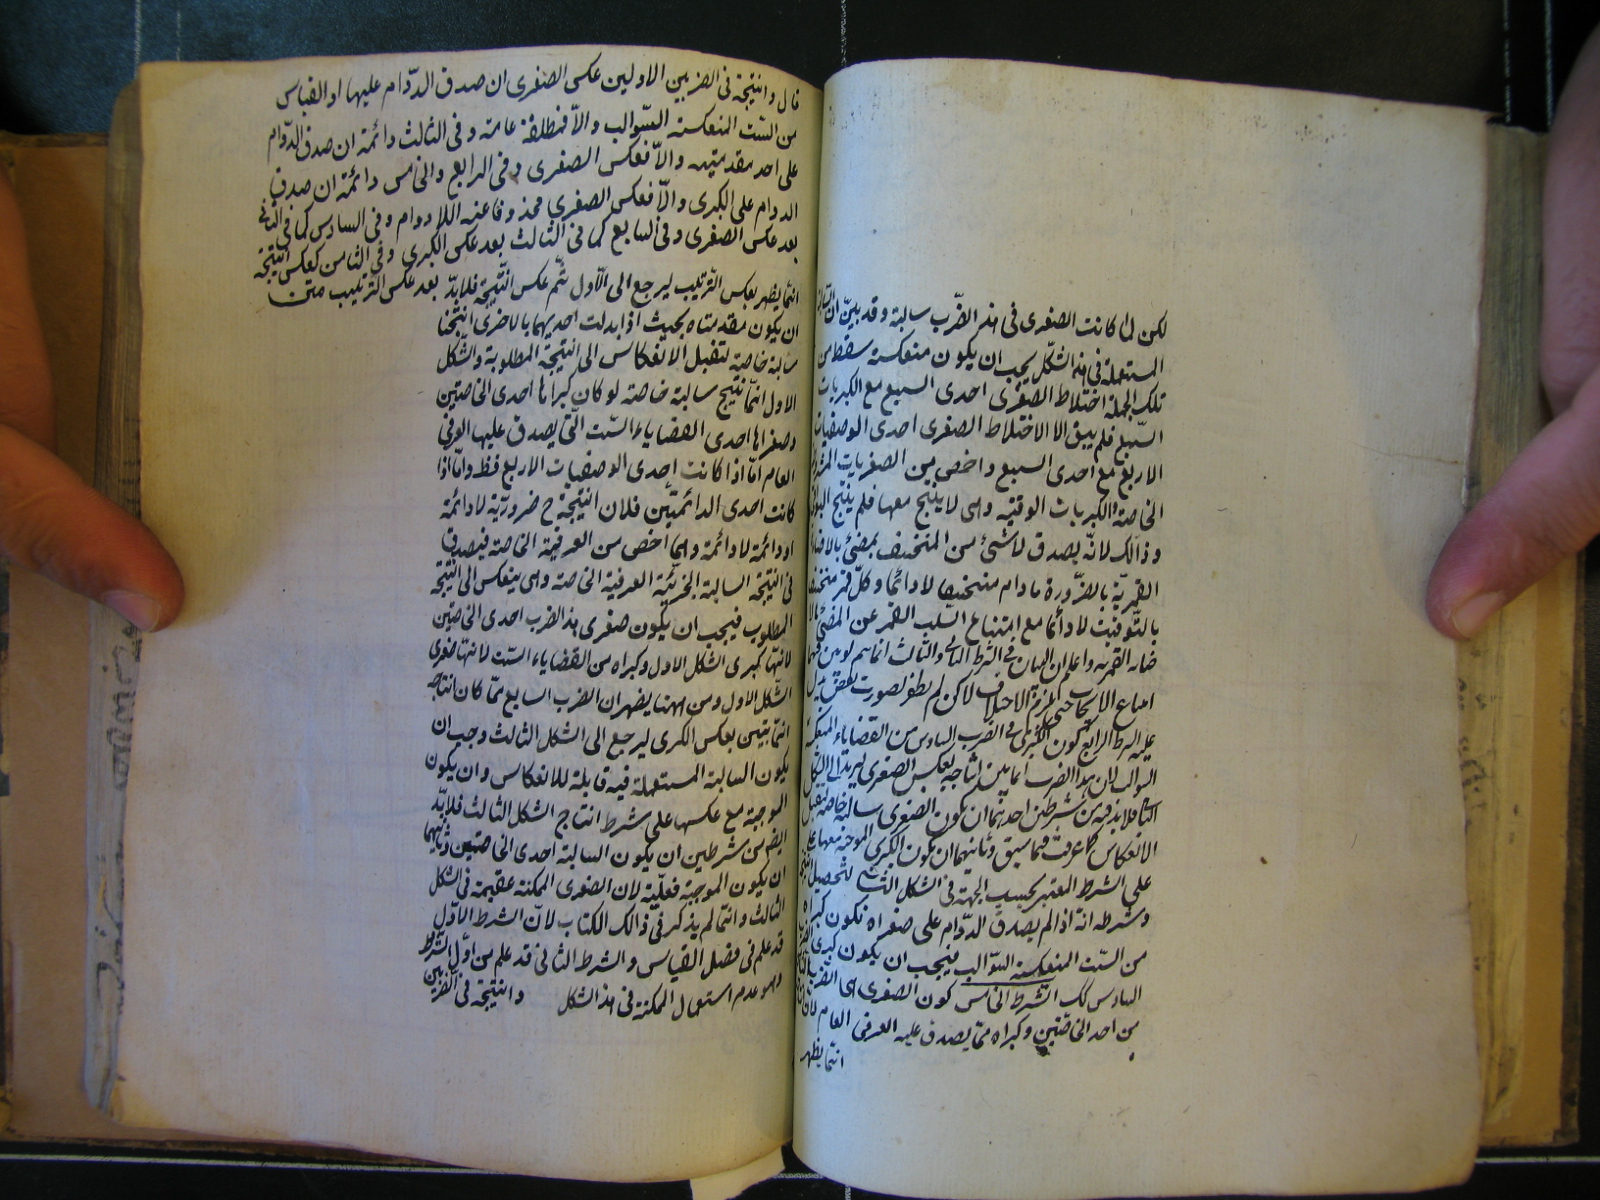 لكن لما كانت الصغرى فى هذ الضرب سالبة وقد بين ان السالبة
المستعملة فى هذا الشكل يجب ان يكون منعكسة سقط من
تلك الجملة اختلاط الصغرى احدى السبع مع الكبريات
السبع فلم يبق الا الاختلاط الصغرى احدى الوصفيات
الاربع مع احدى السبع واخص من الصغريات المشروطة
الخاصة والكبريات الوقتية وهى لا ينتج معها فلم ينتج البواقى
وذالك لانه يصدق لاشئ من المنخسف بمضئ بالاضاءة
القمرية بالضرورة مادام منخسفا لا دائما وكل قمر منخسف
بالتوقيت لا دائما مع امتناع السلب القمر عن المضئ بالا
ضاءة القمرية واعلم ان البيان فى الشرط الثانى والثالث انما يتم لو بين فيهما
امتناع الايجاب حتى يلزم الاختلاف لاكن لم يظفر بصورت نقض يدل
عليه الشرط الرابع كون الكبرى فى الضرب السادس من القضاياء المنعكسة
السوالب لان هذا الضرب انما يتبين انتاجه بعكس الصغرى ليرتد الى الشكل
الثانى فلا بد فيه من شرطين احديهما ان يكون الصغرى سالبة خاصة ليقبل
الانعكاس كما عرفت فيما سبق وثانيهما ان يكون الكبرى الموجبة معها على
على الشرط المعتبر بحسب الجهة فى الشكل الثانى لتحصيل النتيجة
وشرطه انه اذا لم يصدق الدوام على صغراه تكون كبراه
من الست المنعكسة السوالب فيجب ان يكون كبرى الضرب
السادس كك الشرط الخامس كون الصغرى فى الضرب الثامن
من احد الخاصتين وكبراه مما يصدق عليه العرفى العام لان
انتاجه
انما يظهر
انما يظهر بعكس الترتيب ليرجع الى الاول ثم عكس النتيجة فلابد
ان يكون مقدمتاه بحيث اذا بدلت احديهما بالاخرى انتجتا
سالبة خاصة لتقبل الانعكاس الى النتيجة المطلوبة والشكل
الاول انما ينتج سالبة خاصة لو كان كبراها احدى الخاصتين
وصغراها احدى القضاياء الست التى يصدق عليها العرفى
العام اما اذا كانت احدى الوصفيات الاربع فظ واما اذا
كانت احدى الدائمتين فلان النتيجة ح ضرورية لا دائمة
او دائمة لا دائمة وهما اخص من العرفية الخاصة فيصدق
فى النتيجة السالبة الجزئية العرفية الخاصة وهى ينعكس الى النتيجة
المطلوب فيجب ان يكون صغرى هذ الضرب احدى الخاصتين
لانها كبرى الشكل الاول وكبراه من القضاياء الست لانها صغرى
الشكل الاول ومن ههنا يضهر ان الضرب السابع مما كان انتاجه
انما يتبين بعكس الكبرى ليرجع الى الشكل الثالث وجب ان
يكون السالبة المستعملة فيه قابلة للانعكاس وان يكون
الموجبة مع عكسها على شرط انتاج الشكل الثالث فلابد
ايضا من شرطين ان يكون السالبة احدى الخاصتين وثانيهما
ان يكون الموجبة فعلية لان الصغرى الممكنة عقيمة فى الشكل
الثالث وانما لم يذكر فى ذالك الكتاب لان الشرط الاول
قد علم فى فصل القياس والشرط الثانى قد علم من اول الشرط
وهو عدم استعمال الممكنة فى هذ الشكل والنتيجة فى الضربين
قال والنتيجة فى الضربين الاولين عكس الصغرى ان صدق الدوام عليها او القياس
من الست المنعكسة السوالب والا فمطلقة عامة وفى الثالث دائمة ان صدق الدوام
على احد مقدمتيه والا فعكس الصغرى وفى الرابع والخامس دائمة ان صدق
الدوام على الكبرى والا فعكس الصغرى محذوفا عنه اللادوام وفى السادس كما فى الثانى
بعد عكس الصغرى وفى السابع كما فى الثالث بعد عكس الكبرى وفى الثامن كعكس النتيجة
بعد عكس الترتيب متن